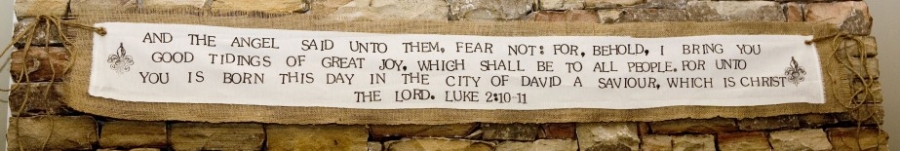 AND THE ANGEL SAID UNTO THEM, FEAR NOT: FOR, BEHOLD, I BRING YOU
GOOD TIDINGS OF GREAT JOY, WHIGH SHALL BE TO ALL PEOPLE. FOR UNTO
YOU IS BORN THIS DAY IN THE CITY OF DAVID A SAVIOUR, WHICH IS CHRIST
THE LORD. LUKE 2:10-11